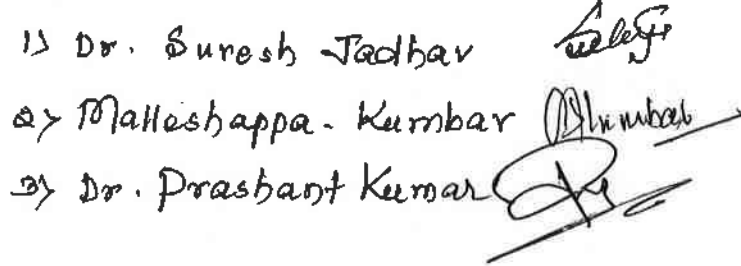 1) Dr. Suresh Jadhav
2) Malleshappa. Kumbar
3) Dr. Prashant Kumar